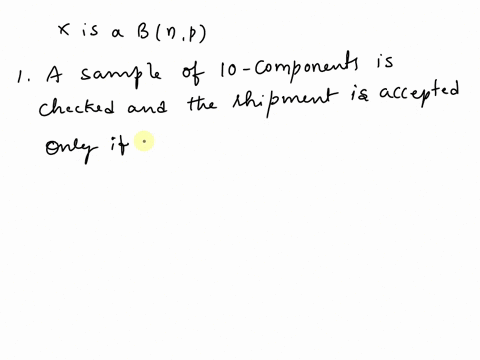 X is a B(n,p)
1. A sample of 10-Components is
checked and the shipment is accepted
only if